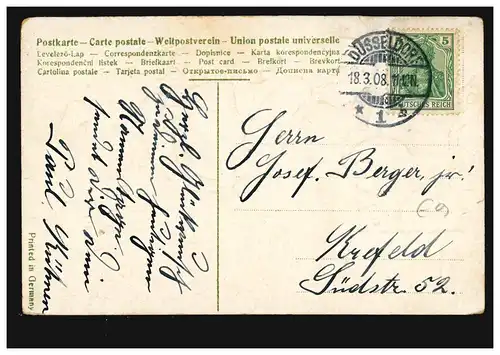 Postkarte – Carte postale – Weltpostverein – Union postale universelle
Levelező-Lap – Correspondenzkarte – Dopisnice – Karta korespondencyjna
Korespondenční listek – Briefkaart – Post card – Brefkort – Brevkort
Cartolina postale – Tarjeta postal – Открытое-письмо – Дописна карта
DÜSSELDORF
18.3.08.
* 1
5
DEUTSCHES REICH
Herrn
Josef Berger, jr!
Krefeld
Südstr. 52.
Herzl. Glückwunsch
zum heutigen
Namenstage
sendet Dir
Paul Kühnen
Printed in Germany